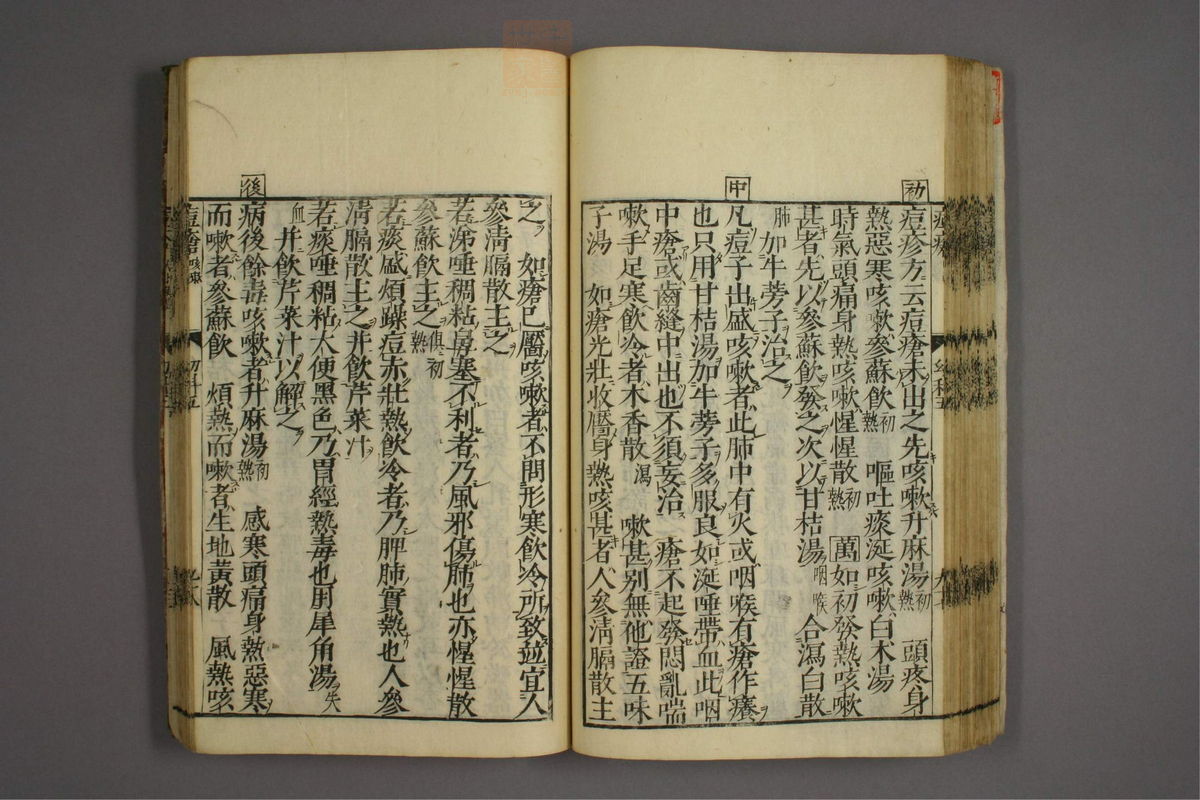 初
痘疹方云痘瘡未出之先咳嗽升麻湯初熱　頭疼身
熱惡寒咳嗽參蘇飲初熱　嘔吐痰涎咳嗽白朮湯
時氣頭痛身熱咳嗽惺惺散初熱　萬如初發熱咳嗽
甚者先以參蘇飲發之次以甘桔湯咽喉合瀉白散
肺加牛蒡子治之
中
凡痘子出盛咳嗽者此肺中有火或咽喉有瘡作癢
也只用甘桔湯加牛蒡子多服良如涎唾帶血此咽
中瘡或齒縫中出也不須妄治　瘡不起發悶亂喘
嗽手足寒飲冷者木香散瀉　嗽甚別無他證五味
子湯　如瘡光壯收靨身熱咳甚者人參清膈散主
之　如瘡已靨咳嗽者不問形寒飲冷所致並宜人
參清膈散主之
若涕唾稠粘鼻塞不利者乃風邪傷肺也亦惺惺散
參蘇飲主之俱初熱
若痰盛煩躁痘赤壯熱飲冷者乃脾肺實熱也人參
清膈散主之并飲芹菜汁
若痰唾稠粘大便黑色乃胃經熱毒也用犀角湯失
血并飲芹菜汁以解之
後
病後餘毒咳嗽者升麻湯初熱　感寒頭痛身熱惡寒
而嗽者參蘇飲　煩熱而嗽者生地黃散　風熱咳
痘瘡咳嗽